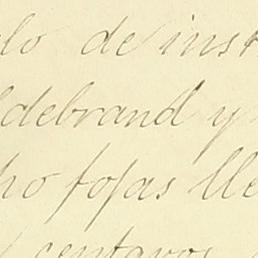 lo de inst
debrand y
ho fojas lle
centavos